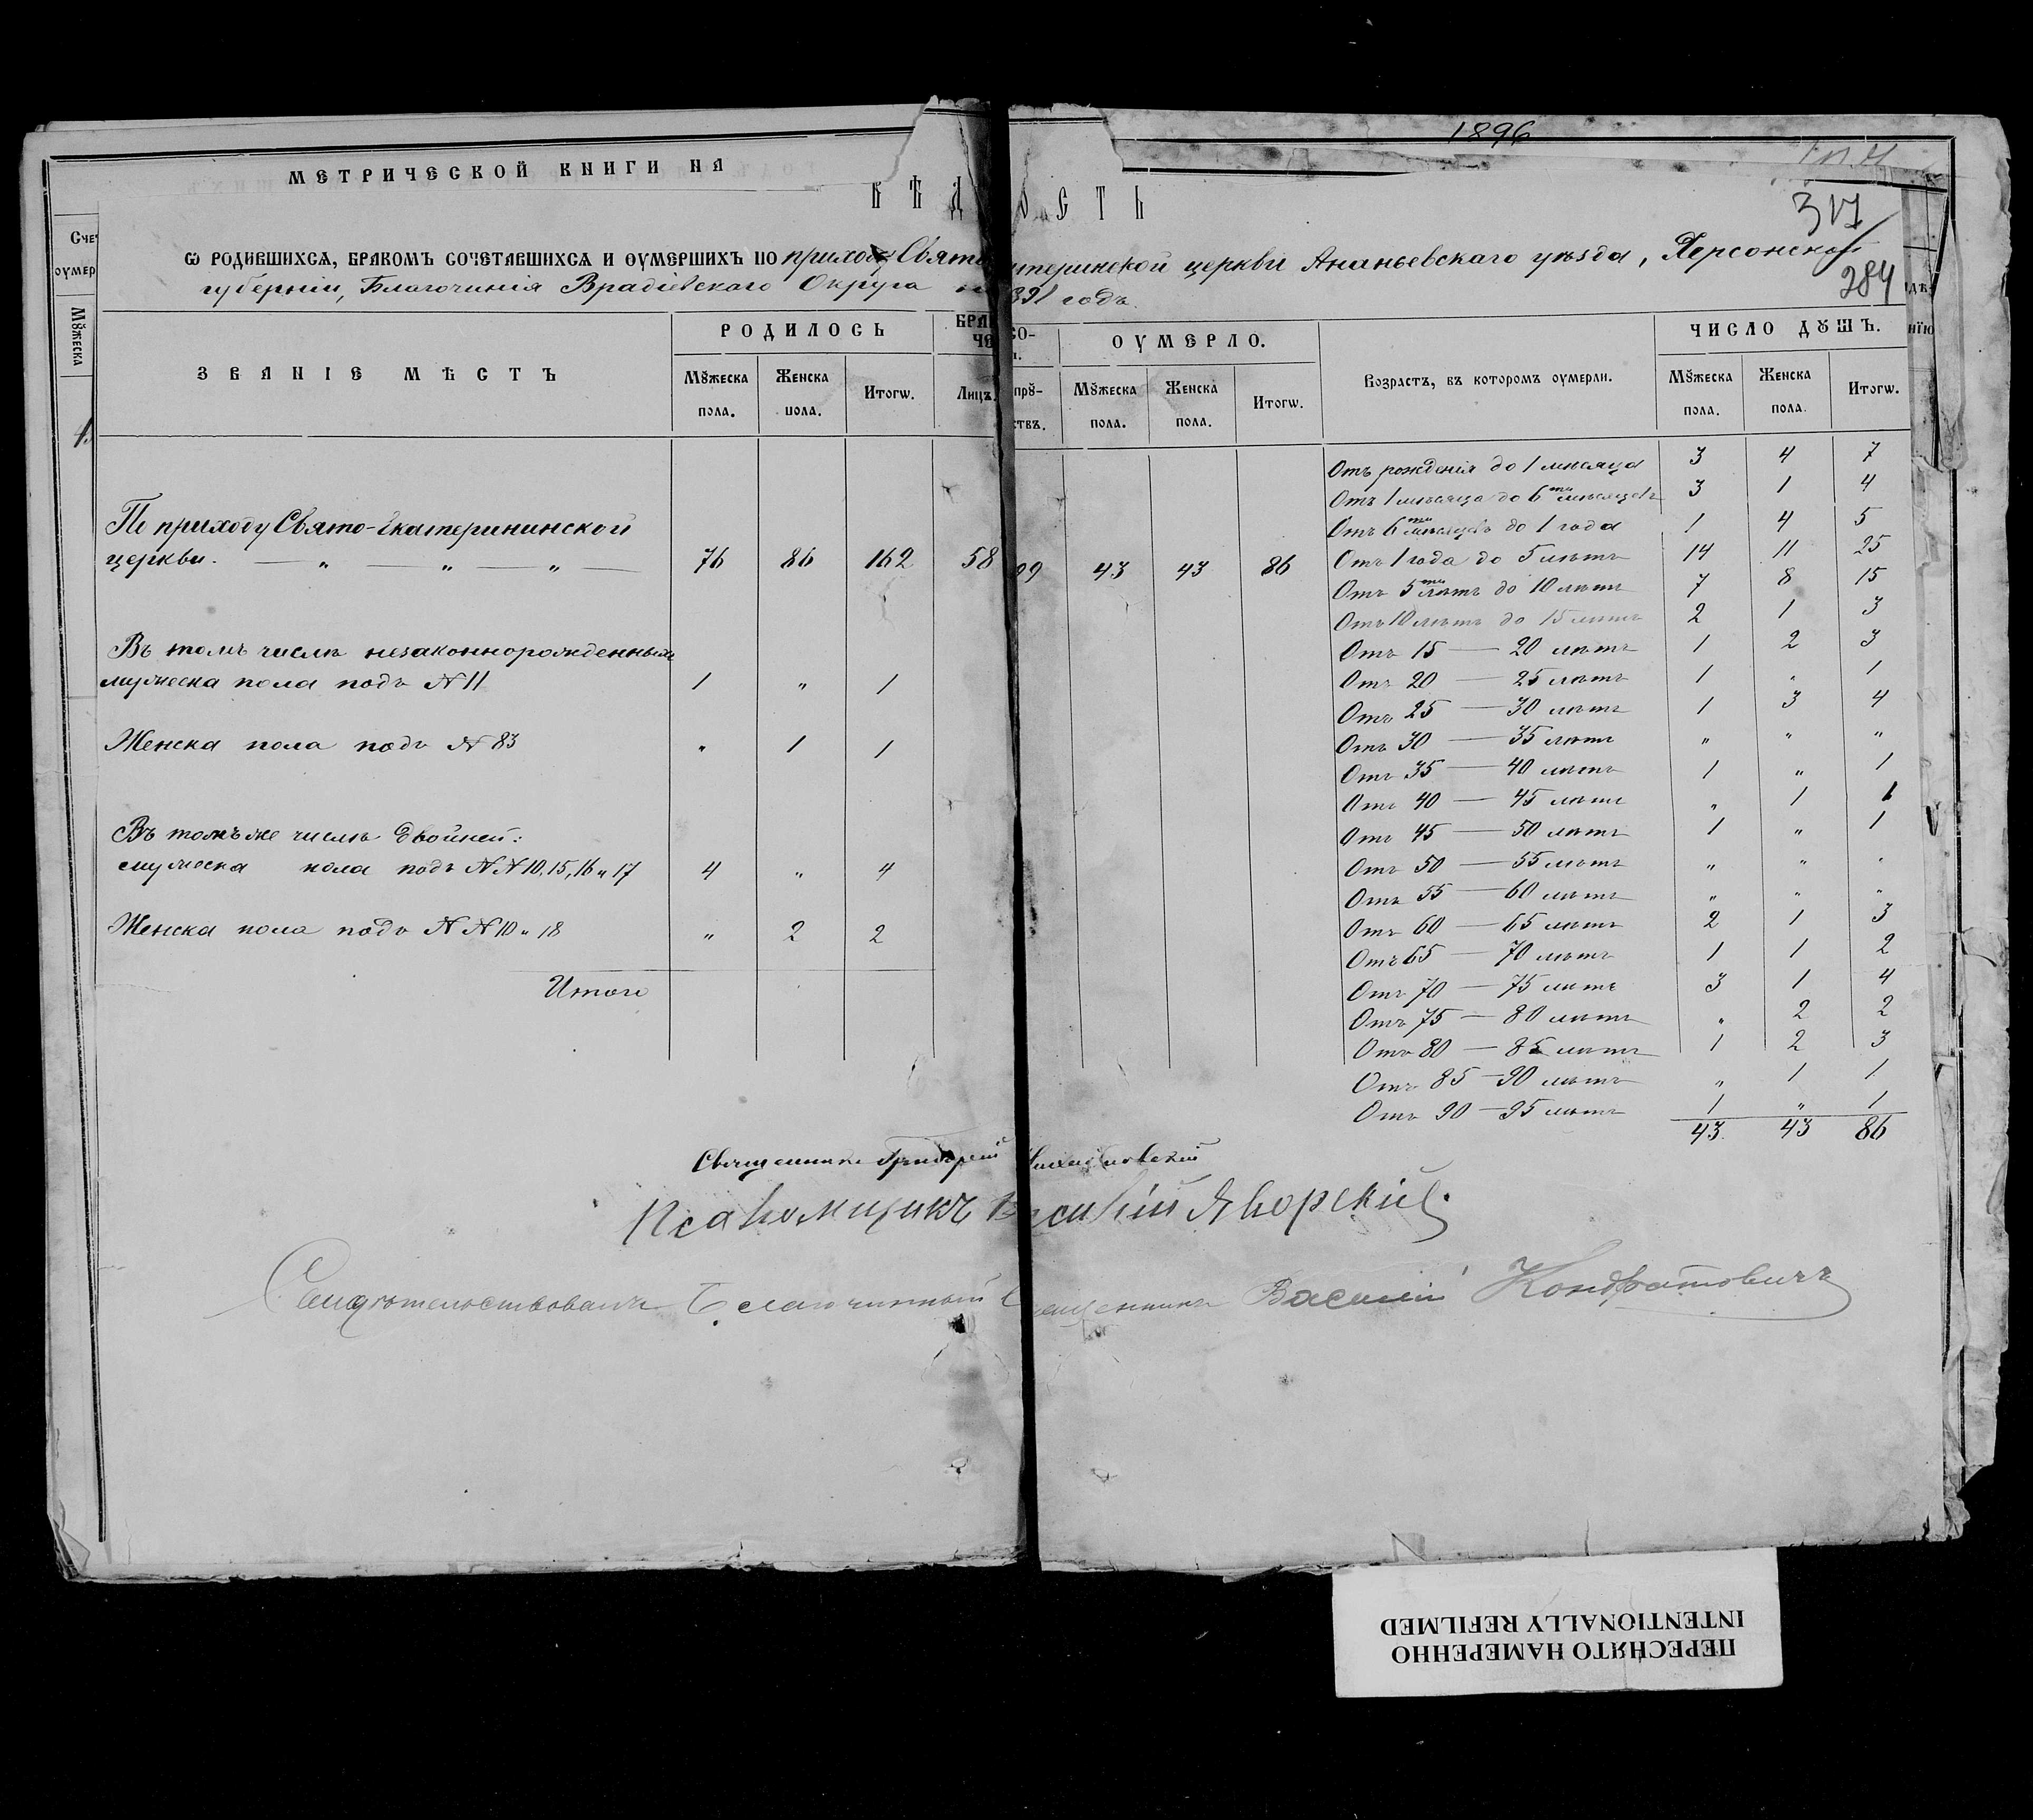 1896
МЕТРИЧЕСКОЙ КНИГИ НА
ВѢД ОСТЬ
317
Ѡ РОДИВШИХСѦ, БРАКОМЪ СОЧЕТАВШИХСѦ И ОУМЕРШИХЪ ПО приходу Свято теринской церкви Ананьевскаго уѣзда, Херсонской
губерніи, Благочинія Врадіевскаго Округа 891 годъ.
284
Сче
оумер
Мꙋжеска
ЗВАНІЕ МѢСТЪ
РОДИЛОСЬ
Мꙋжеска пола.
Женска пола.
Итогѡ.
БРА СО-
ЧЕ
Лицъ.
прꙋ-
ствъ.
ОУМЕРЛО.
Мꙋжеска пола.
Женска пола.
Итогѡ.
Возрастъ, въ которомъ оумерли.
ЧИСЛО ДꙊШЪ.
Мꙋжеска пола.
Женска пола.
Итогѡ.
По приходу Свято-Екатерининской
церкви. — „ — „ — „ — 76 86 162 58 29 43 43 86
Въ томъ числѣ незаконнорожденныхъ
мужеска пола подъ № 11 1 „ 1
Женска пола подъ № 83 „ 1 1
Въ томъ же числѣ двойней:
мужеска пола подъ №№ 10, 15, 16 „ 17 4 „ 4
Женска пола подъ №№ 10 „ 18 „ 2 2
Итого
Отъ рожденія до 1 мѣсяца 3 4 7
Отъ 1 мѣсяца до 6ти мѣсяцевъ 3 1 4
Отъ 6ти мѣсяцевъ до 1 года 1 4 5
Отъ 1 года до 5 лѣтъ 14 11 25
Отъ 5ти лѣтъ до 10 лѣтъ 7 8 15
Отъ 10 лѣтъ до 15 лѣтъ 2 1 3
Отъ 15 — 20 лѣтъ 1 2 3
Отъ 20 — 25 лѣтъ 1 „ 1
Отъ 25 — 30 лѣтъ 1 3 4
Отъ 30 — 35 лѣтъ „ „ „
Отъ 35 — 40 лѣтъ 1 „ 1
Отъ 40 — 45 лѣтъ „ 1 1
Отъ 45 — 50 лѣтъ 1 „ 1
Отъ 50 — 55 лѣтъ „ „ „
Отъ 55 — 60 лѣтъ „ „ „
Отъ 60 — 65 лѣтъ 2 1 3
Отъ 65 — 70 лѣтъ 1 1 2
Отъ 70 — 75 лѣтъ 3 1 4
Отъ 75 — 80 лѣтъ „ 2 2
Отъ 80 — 85 лѣтъ 1 2 3
Отъ 85 — 90 лѣтъ „ 1 1
Отъ 90 — 95 лѣтъ 1 „ 1
43 43 86
Священникъ Григорій
Псаломщикъ Василій Яворскій.
Свидѣтельствовалъ Благочинный Священникъ Василій Кондратовичъ
ПЕРЕСНЯТО НАМЕРЕННО
INTENTIONALLY REFILMED